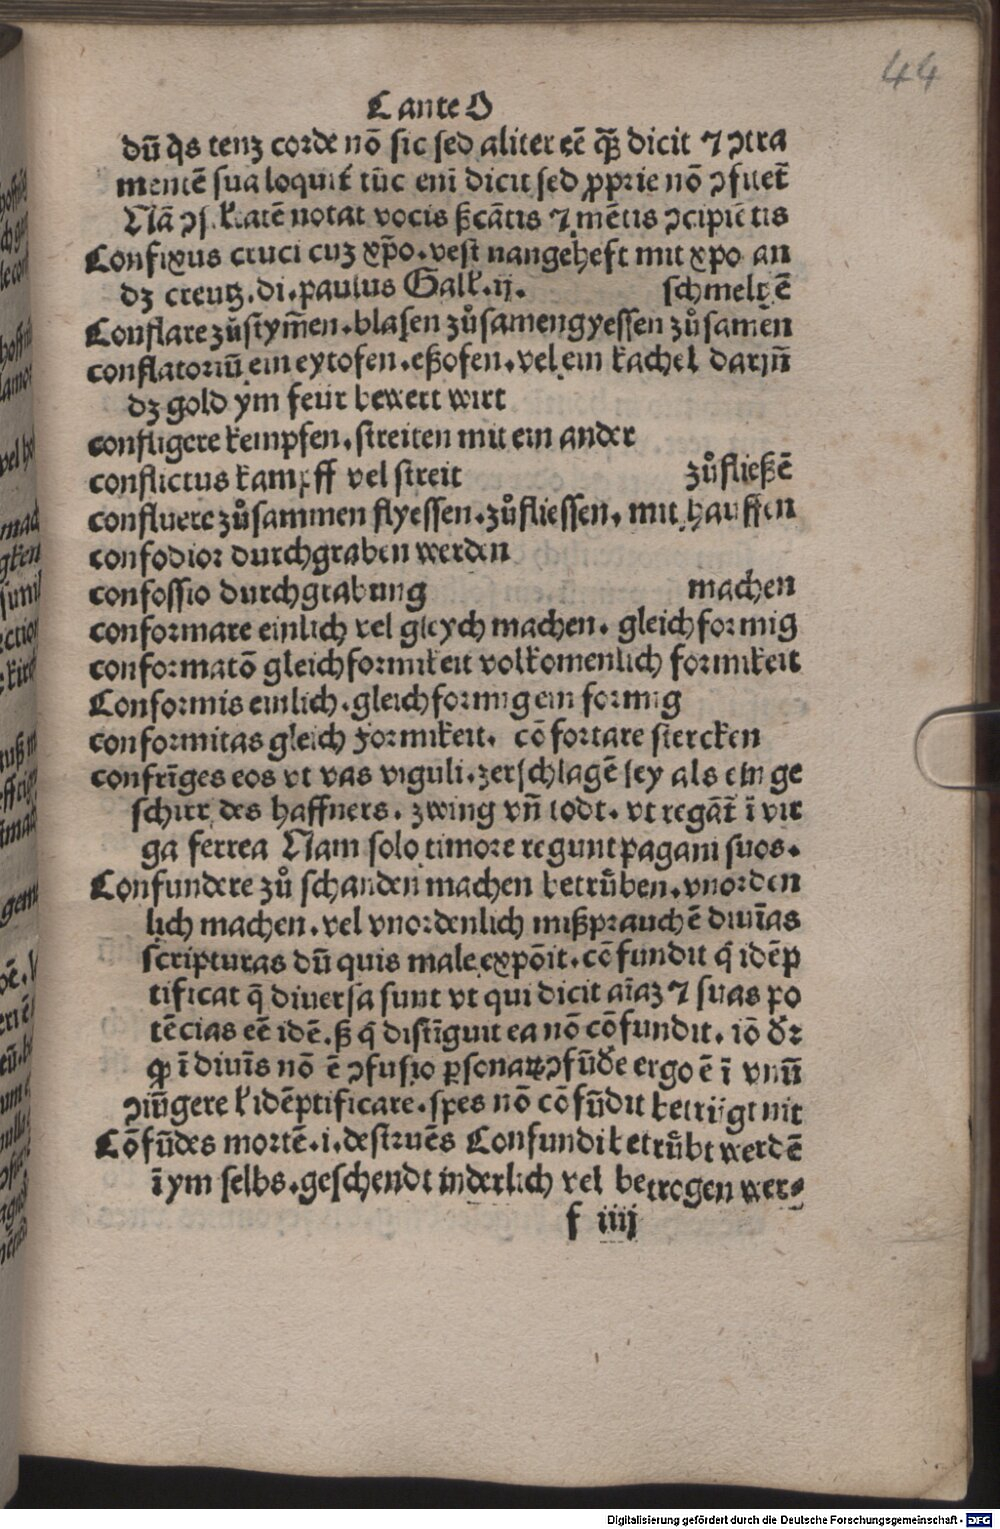 44
C ante O
dū q̄s tenꝫ corde nō sic sed aliter eē q̄ꝫ dicit ⁊ ↄtra
mentē sua loquit᷑ tūc eni dicit sed ꝓprie nō ↄfitet᷑
Nā notat vocis mētis ↄcipiētis
Confixus cruci cuꝫ xp̄o. vest nangeheft mit xpo an
dꝫ creutz. di. paulus Gall. ij. schmeltzē
Conflare zůstym̄en. blasen zůsamengyessen zůsamēn
conflatoriū ein eytofen. eßofen. vel ein kachel darjn̄
dꝫ gold ym feur bewert wirt
confligere kempfen. streiten mit ein ander
conflictus kampff vel streit zůfließē
confluere zůsammen flyessen. zůfliessen, mit hauffen
confodior durchgraben werden
confossio durchgrabung machen
conformare einlich vel gleych machen. gleichformig
conformatō gleichformikeit volkomenlich formikeit
Conformis einlich. gleichformig ein formig
conformitas gleich formikeit. cō fortare stercken
confrīges eos vt vas viguli. zerschlagē sey als ein ge
schirr des haffners. zwing vn̄ todt. vt regāt ī vir
ga ferrea Nam solo timore regunt pagani suos.
Confundere zů schanden machen betrůben. vnorden
lich machen. vel vnordenlich mißprauchē diuīas
scripturas dū quis male expōit. cōfundit q̄ idēp
tificat q̄ diuersa sunt vt qui dicit aīaꝫ ⁊ suas po
tēcias eē idē. ß q̄ distīguit ea nō cōfundit. iō dꝛ
ꝙ ī diuīs nō ē ↄfusio ꝑsonaꝝ ↄfūde ergo ē ī vnū
ↄiūgere ł idēptificare. spes nō cōfūdit betriegt nit
Cōfūdes mortē. i. destruēs Confundi betrůbt werdē
ī ym selbs. geschendt inderlich vel betrogen wer-
f iiij
Digitalisierung gefördert durch die Deutsche Forschungsgemeinschaft - DFG